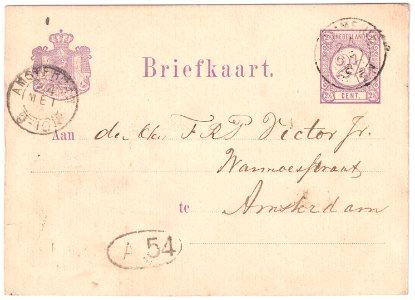 NEDERLAND
CENT.
Briefkaart.
AMSTERDAM
MEI
Aan den Hr. F R P Victor Jr.
Warmoesstraat
te Amsterdam
A 54